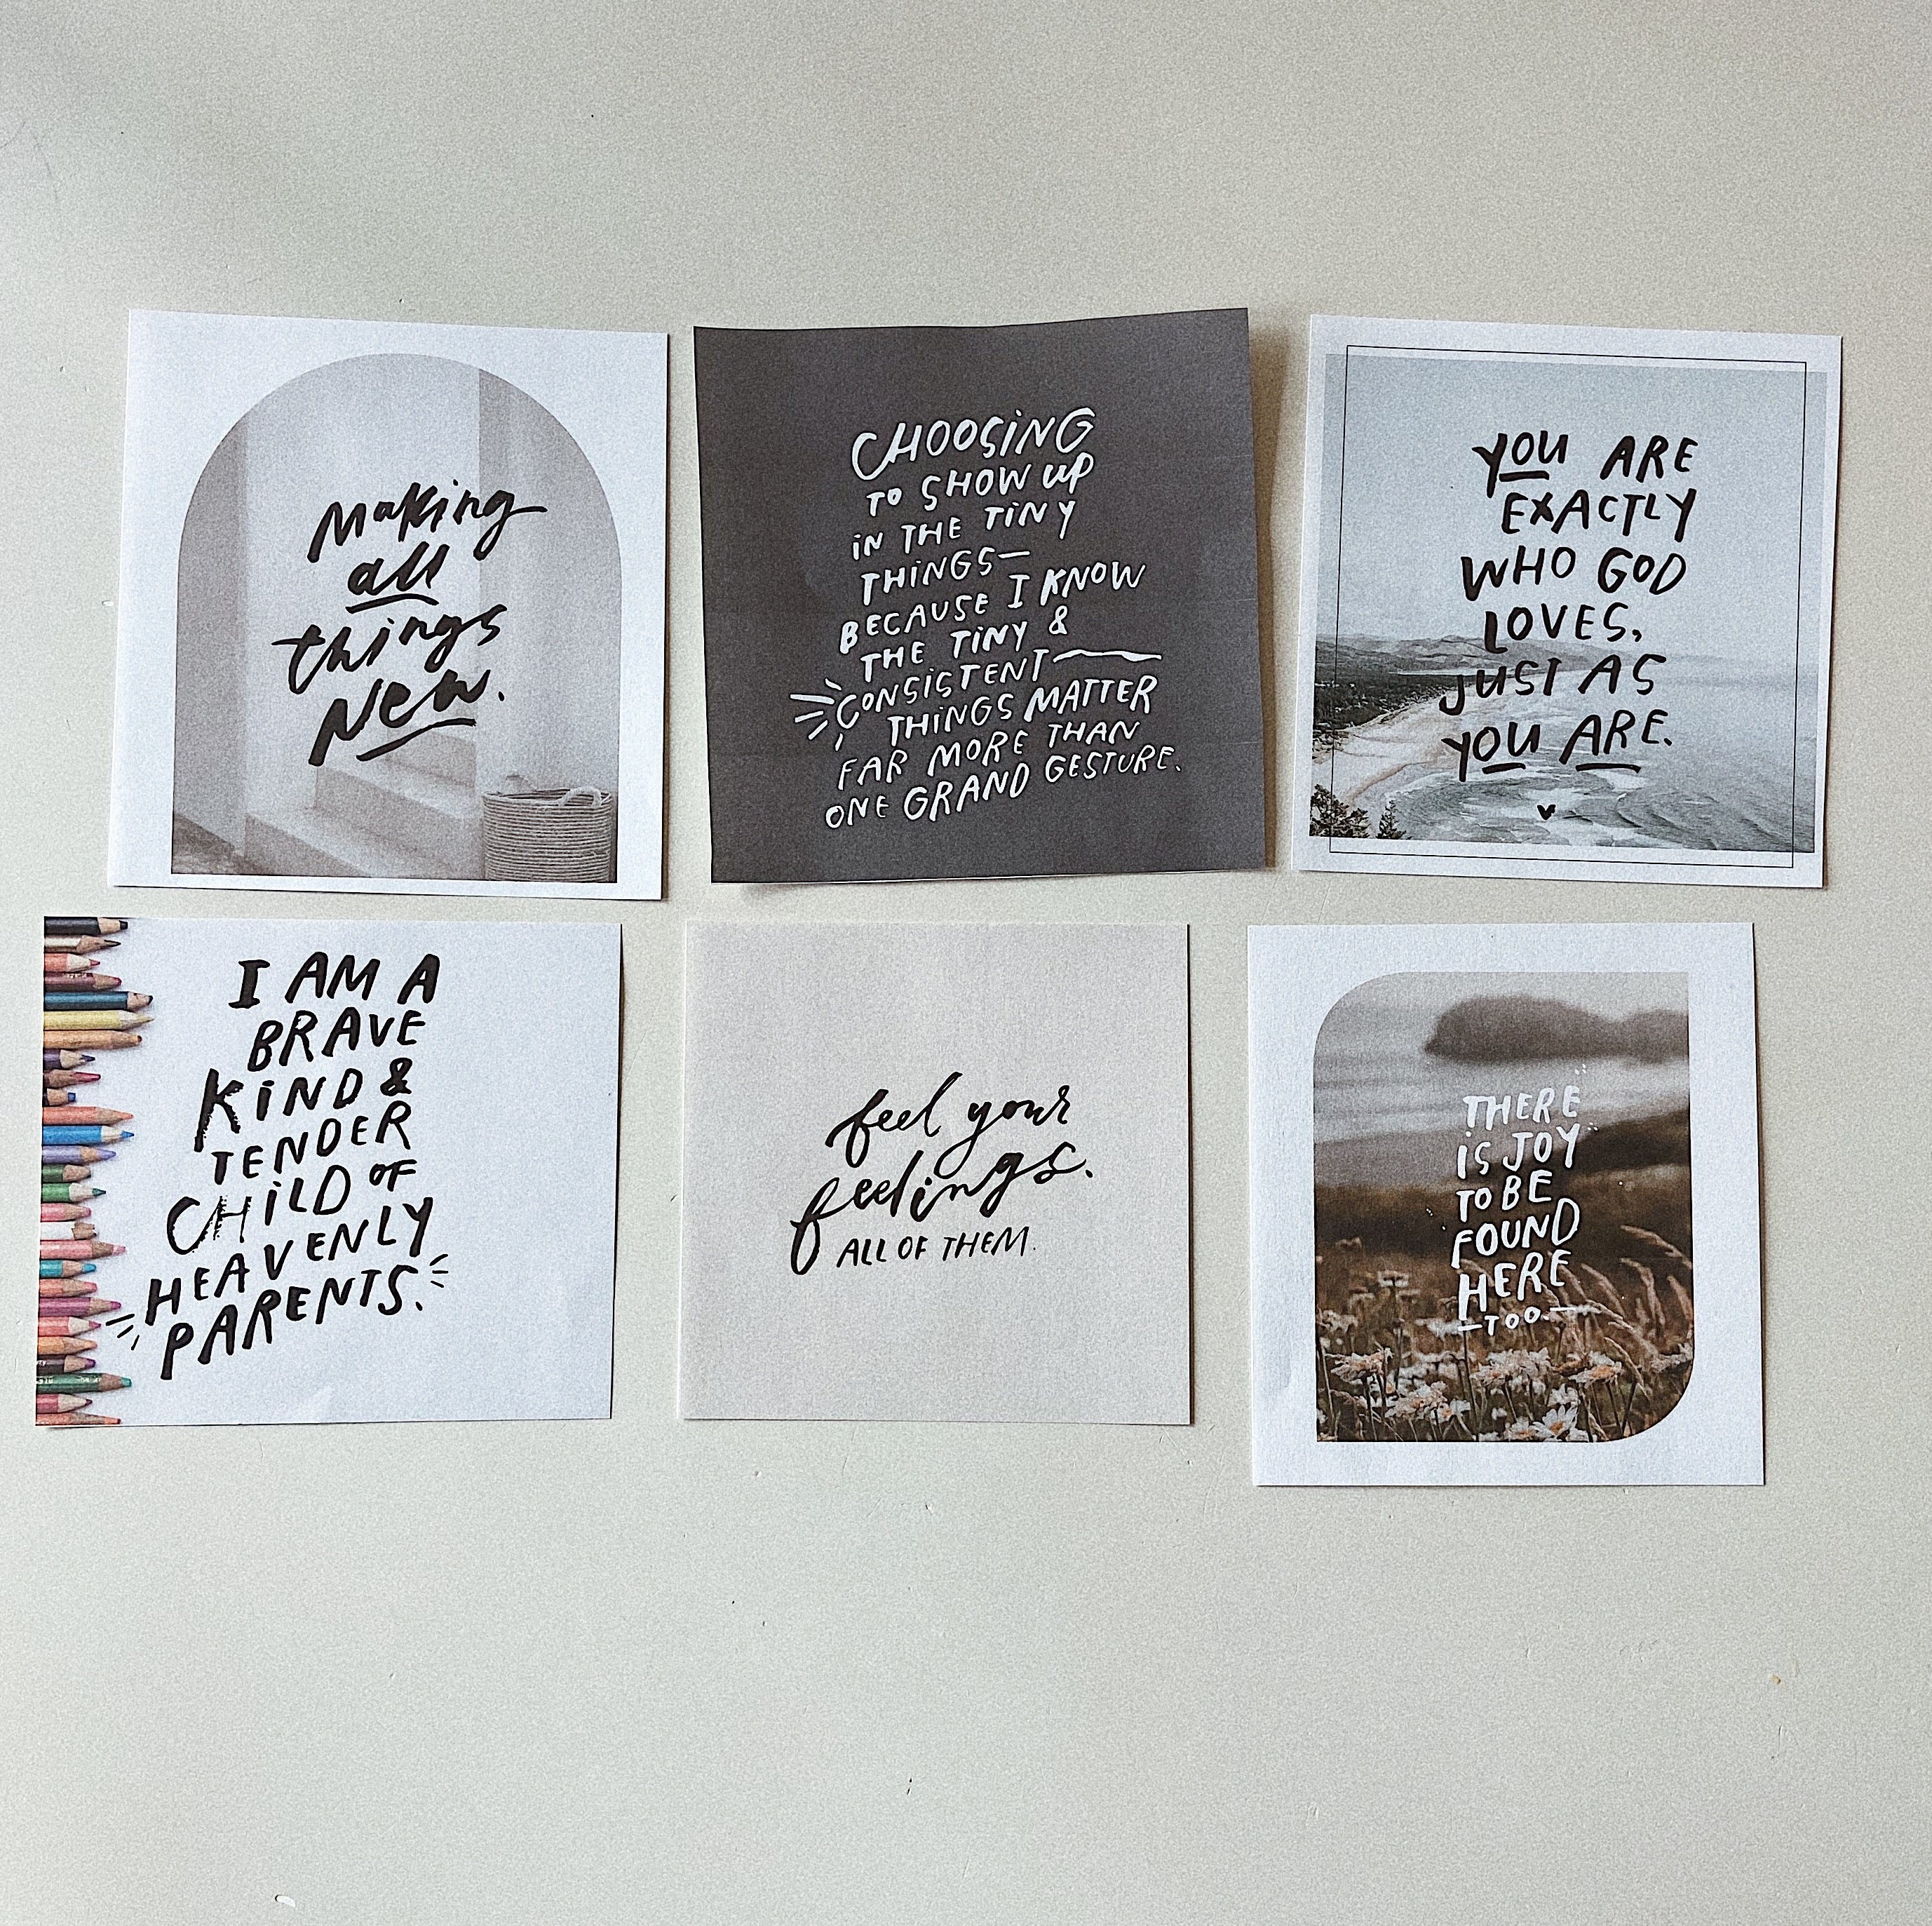 Making
all
things
New.
CHOOSING
TO SHOW UP
IN THE TINY
THINGS—
BECAUSE I KNOW
THE TINY &
CONSISTENT
THINGS MATTER
FAR MORE THAN
ONE GRAND GESTURE.
YOU ARE
EXACTLY
WHO GOD
LOVES,
JUST AS
YOU ARE.
I AM A
BRAVE
KIND &
TENDER
CHILD OF
HEAVENLY
PARENTS.
feel your
feelings.
ALL OF THEM.
THERE
IS JOY
TO BE
FOUND
HERE
—TOO—